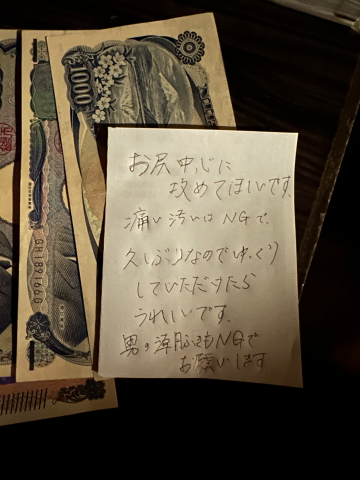 1000
お尻中心に
攻めてほしいです。
痛い汚いは NGで、
久しぶりなのでゆっくり
していただけたら
うれしいです。
男の もNGで
お願いします